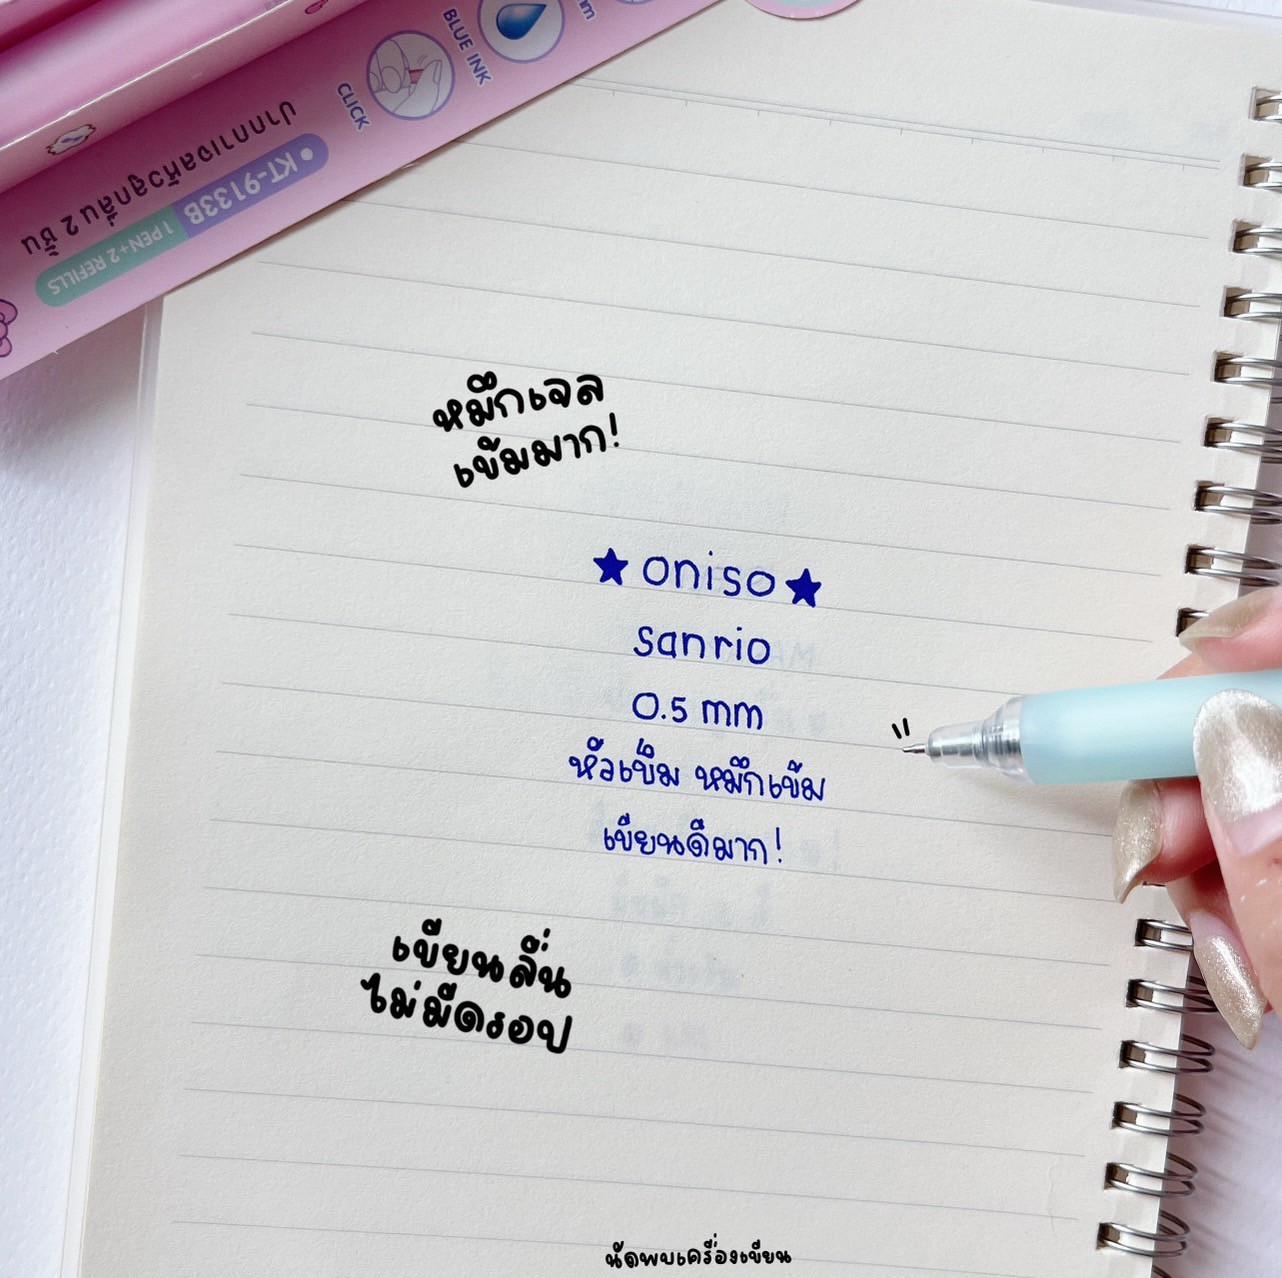 BLUE INK
CLICK
ปากกาเจลหัวลูกลื่น 2 ชิ้น
KT-9133B
1 PEN+2 REFILLS
หมึกเจล
เข้มมาก!
★ oniso ★
sanrio
0.5 mm
หัวเข็ม หมึกเข้ม
เขียนดีมาก!
เขียนลื่น
ไม่มีดรอป
นัดพบเครื่องเขียน